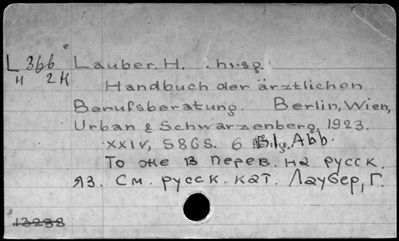 L 366
H 2H
Lauber. H. hrsg.
Handbuch der ärztlichen
Berufsberatung. Berlin, Wien,
Urban & Schwarzenberg, 1923.
XXIV, 586 S. 6 Bl., Abb.
То же в перев. на русск.
яз. См. русск. кат. Лаубер, Г.
13238